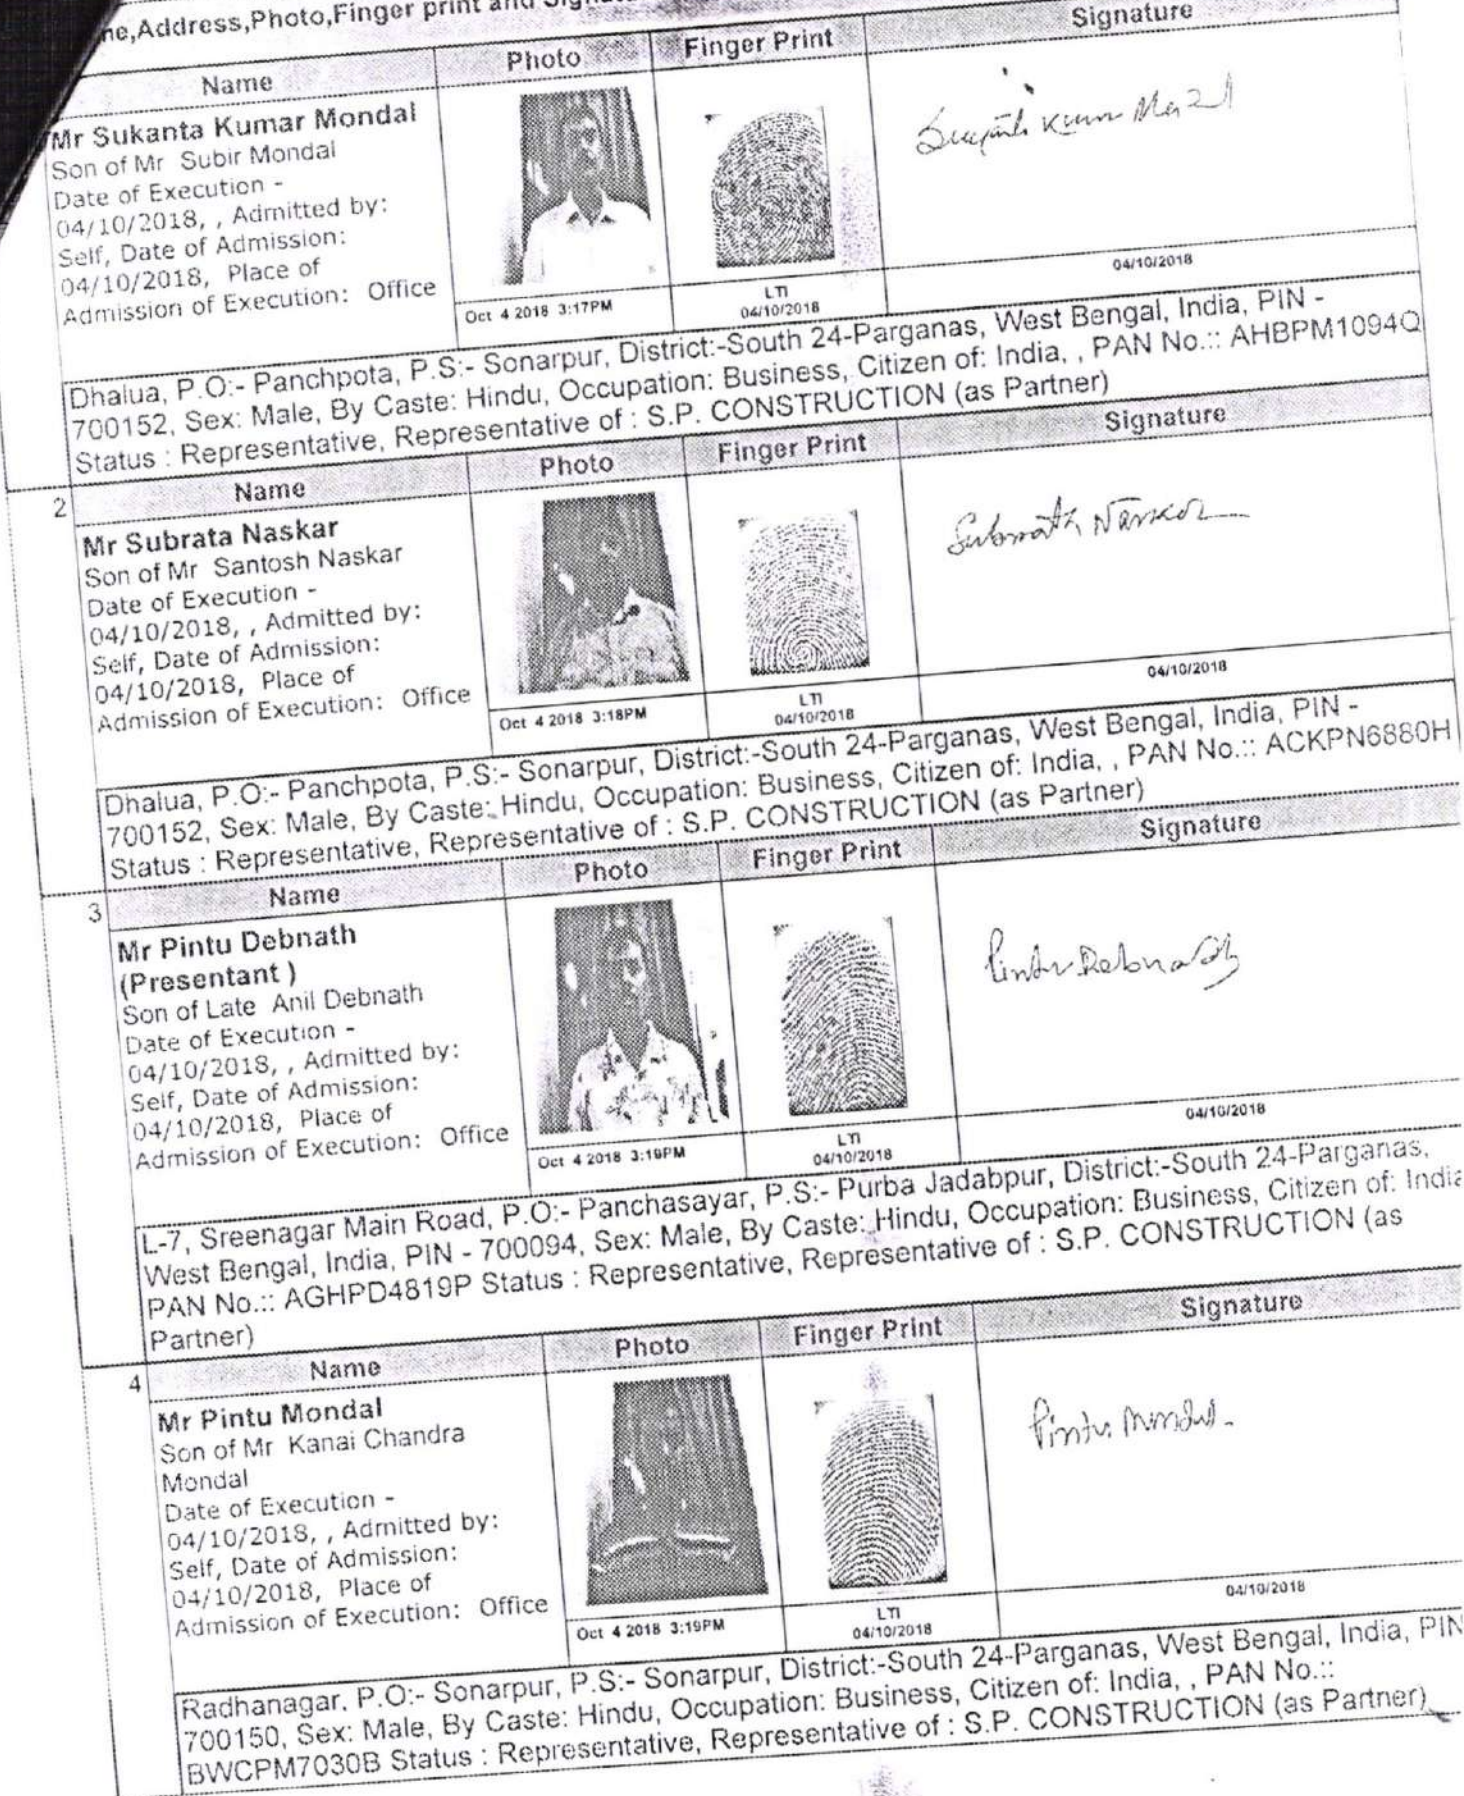 ne,Address,Photo,Finger print and
Name Photo Finger Print Signature
Mr Sukanta Kumar Mondal
Son of Mr Subir Mondal
Date of Execution -
04/10/2018, , Admitted by:
Self, Date of Admission:
04/10/2018, Place of
Admission of Execution: Office
Oct 4 2018 3:17PM
LTI
04/10/2018
04/10/2018
Dhalua, P.O:- Panchpota, P.S:- Sonarpur, District:-South 24-Parganas, West Bengal, India, PIN -
700152, Sex: Male, By Caste: Hindu, Occupation: Business, Citizen of: India, , PAN No.:: AHBPM1094Q
Status : Representative, Representative of : S.P. CONSTRUCTION (as Partner)
2 Name Photo Finger Print Signature
Mr Subrata Naskar
Son of Mr Santosh Naskar
Date of Execution -
04/10/2018, , Admitted by:
Self, Date of Admission:
04/10/2018, Place of
Admission of Execution: Office
Oct 4 2018 3:18PM
LTI
04/10/2018
Naskar
04/10/2018
Dhalua, P.O:- Panchpota, P.S:- Sonarpur, District:-South 24-Parganas, West Bengal, India, PIN -
700152, Sex: Male, By Caste: Hindu, Occupation: Business, Citizen of: India, , PAN No.:: ACKPN6880H
Status : Representative, Representative of : S.P. CONSTRUCTION (as Partner)
3 Name Photo Finger Print Signature
Mr Pintu Debnath
(Presentant )
Son of Late Anil Debnath
Date of Execution -
04/10/2018, , Admitted by:
Self, Date of Admission:
04/10/2018, Place of
Admission of Execution: Office
Oct 4 2018 3:19PM
LTI
04/10/2018
Pintu Debnath
04/10/2018
L-7, Sreenagar Main Road, P.O:- Panchasayar, P.S:- Purba Jadabpur, District:-South 24-Parganas,
West Bengal, India, PIN - 700094, Sex: Male, By Caste: Hindu, Occupation: Business, Citizen of: India
PAN No.:: AGHPD4819P Status : Representative, Representative of : S.P. CONSTRUCTION (as
Partner)
4 Name Photo Finger Print Signature
Mr Pintu Mondal
Son of Mr Kanai Chandra
Mondal
Date of Execution -
04/10/2018, , Admitted by:
Self, Date of Admission:
04/10/2018, Place of
Admission of Execution: Office
Oct 4 2018 3:19PM
LTI
04/10/2018
Pintu Mondal.
04/10/2018
Radhanagar, P.O:- Sonarpur, P.S:- Sonarpur, District:-South 24-Parganas, West Bengal, India, PIN
700150, Sex: Male, By Caste: Hindu, Occupation: Business, Citizen of: India, , PAN No.::
BWCPM7030B Status : Representative, Representative of : S.P. CONSTRUCTION (as Partner)